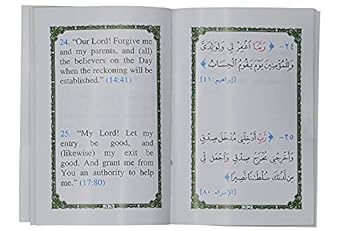 24. "Our Lord! Forgive me
and my parents, and (all)
the believers on the Day
when the reckoning will
be established." (14:41)
25. "My Lord! Let my
entry be good, and
(likewise) my exit be
good. And grant me from
You an authority to help
me." (17:80)
٢٤- ﴿ رَبَّنَا ٱغْفِرْ لِى وَلِوَٰلِدَىَّ
وَلِلْمُؤْمِنِينَ يَوْمَ يَقُومُ ٱلْحِسَابُ ﴾
[إبراهيم: ٤١]
٢٥- ﴿ رَّبِّ أَدْخِلْنِى مُدْخَلَ صِدْقٍ
وَأَخْرِجْنِى مُخْرَجَ صِدْقٍ وَٱجْعَل لِّى
مِن لَّدُنكَ سُلْطَٰنًا نَّصِيرًا ﴾
[الإسراء: ٨٠]